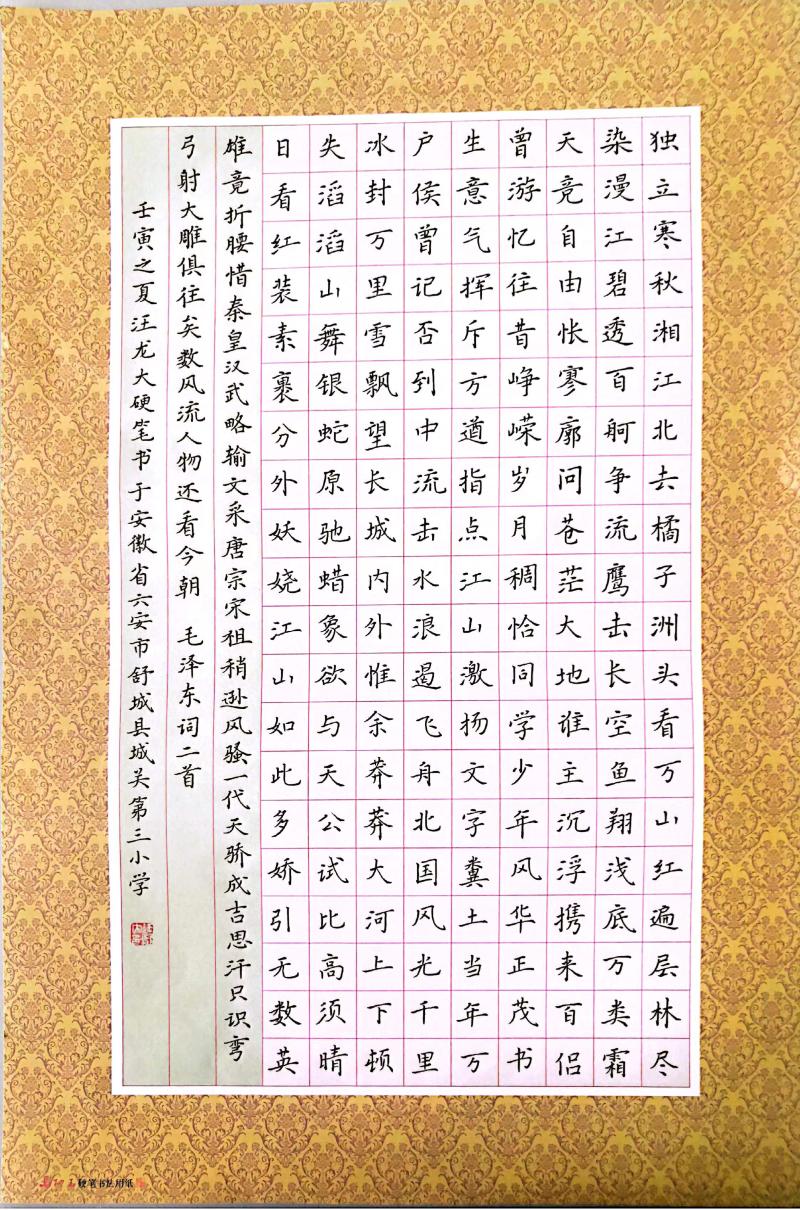 独立寒秋湘江北去橘子洲头看万山红遍层林尽
染漫江碧透百舸争流鹰击长空鱼翔浅底万类霜
天竞自由怅寥廓问苍茫大地谁主沉浮携来百侣
曾游忆往昔峥嵘岁月稠恰同学少年风华正茂书
生意气挥斥方遒指点江山激扬文字粪土当年万
户侯曾记否到中流击水浪遏飞舟北国风光千里
冰封万里雪飘望长城内外惟余莽莽大河上下顿
失滔滔山舞银蛇原驰蜡象欲与天公试比高须晴
日看红装素裹分外妖娆江山如此多娇引无数英
雄竟折腰惜秦皇汉武略输文采唐宗宋祖稍逊风骚一代天骄成吉思汗只识弯
弓射大雕俱往矣数风流人物还看今朝 毛泽东词二首
壬寅之夏汪龙大硬笔书于安徽省六安市舒城县城关第三小学
硬笔书法用纸